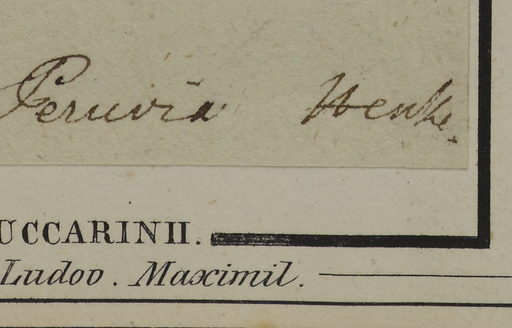 Peruvia Henke.
UCCARINII.
Ludov. Maximil.